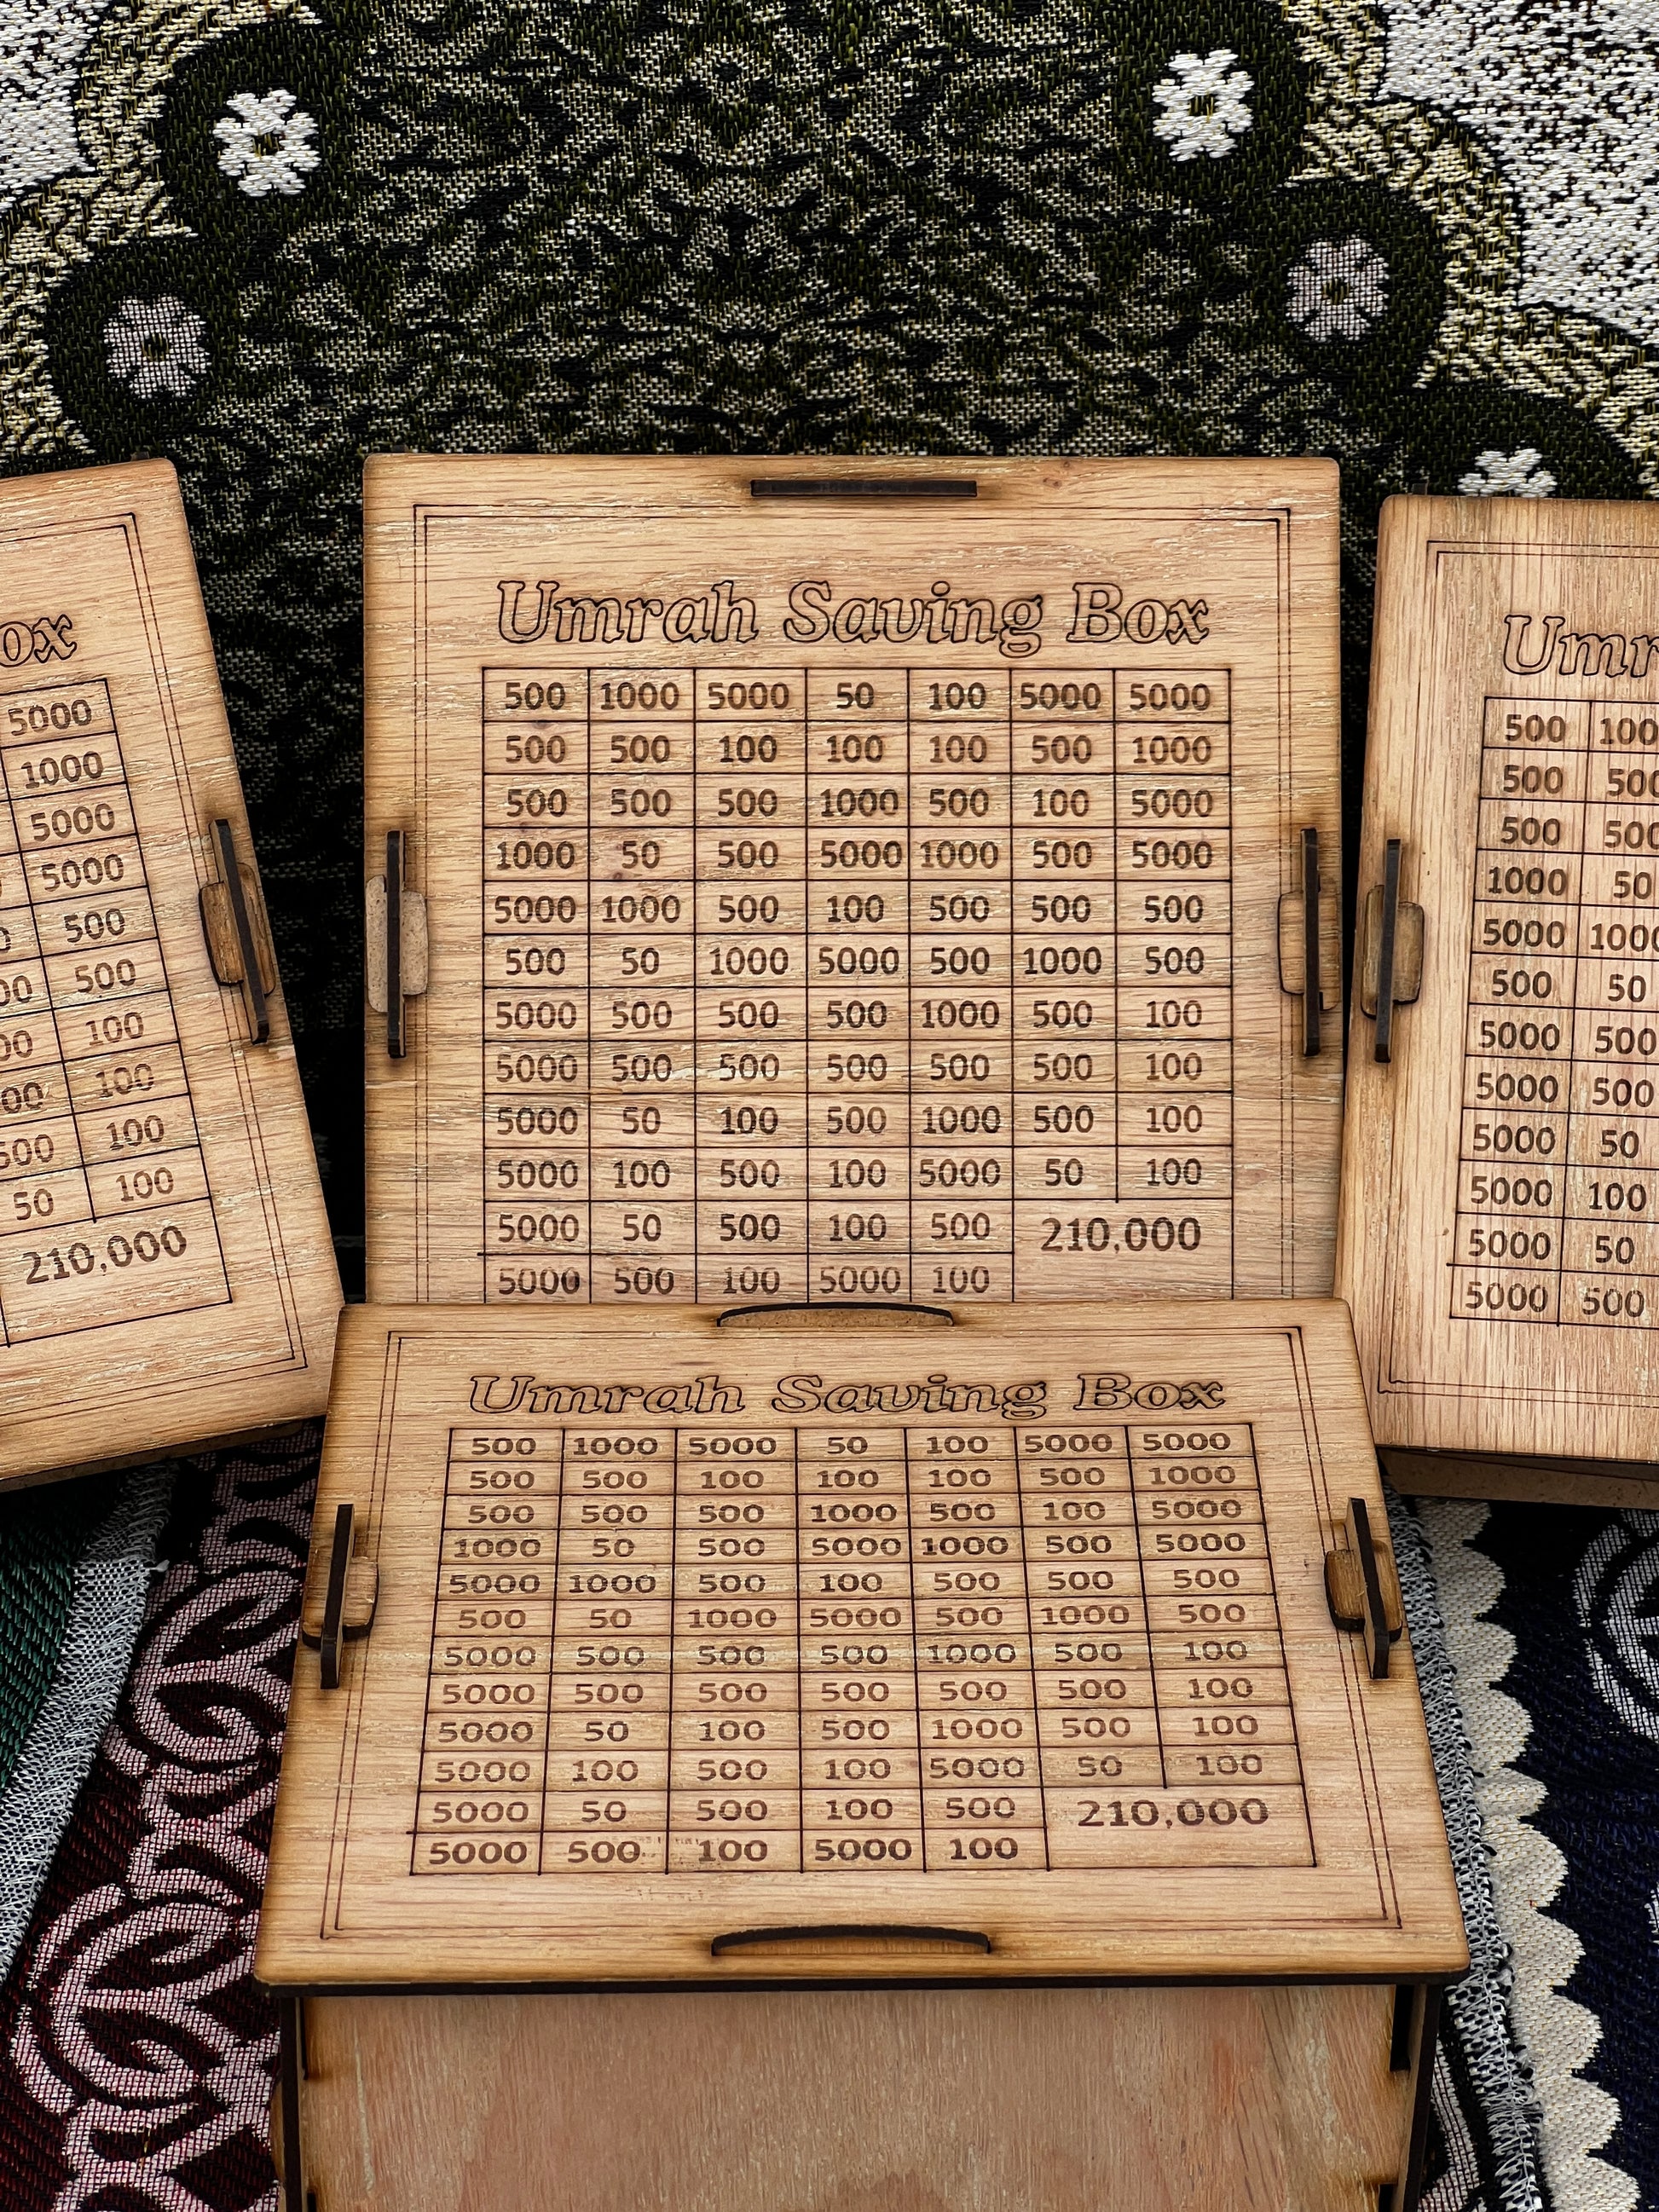 Umrah Saving Box
500 1000 5000 50 100 5000 5000
500 500 100 100 100 500 1000
500 500 500 1000 500 100 5000
1000 50 500 5000 1000 500 5000
5000 1000 500 100 500 500 500
500 50 1000 5000 500 1000 500
5000 500 500 500 1000 500 100
5000 500 500 500 500 500 100
5000 50 100 500 1000 500 100
5000 100 500 100 5000 50 100
5000 50 500 100 500 210,000
5000 500 100 5000 100
5000
1000
5000
5000
500
500
100
100
100
50 100
210,000
500
500 500
500 500
1000 50
5000 1000
500 50
5000 500
5000 500
5000 50
5000 100
5000 50
5000 500
Umrah Saving Box
500 1000 5000 50 100 5000 5000
500 500 100 100 100 500 1000
500 500 500 1000 500 100 5000
1000 50 500 5000 1000 500 5000
5000 1000 500 100 500 500 500
500 50 1000 5000 500 1000 500
5000 500 500 500 1000 500 100
5000 500 500 500 500 500 100
5000 50 100 500 1000 500 100
5000 100 500 100 5000 50 100
5000 50 500 100 500 210,000
5000 500 100 5000 100